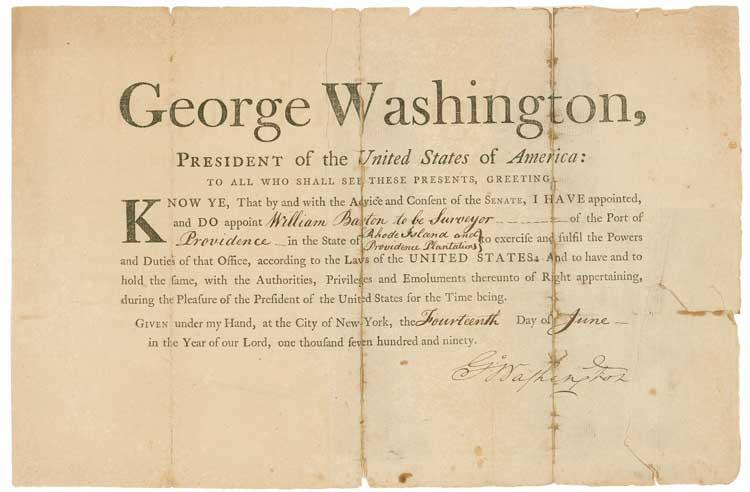 George Washington,
PRESIDENT of the United States of America:
TO ALL WHO SHALL SEE THESE PRESENTS, GREETING.
KNOW YE, That by and with the Advice and Consent of the SENATE, I HAVE appointed,
and DO appoint William Barton to be Surveyor of the Port of
Providence in the State of Rhode Island and Providence Plantations to exercise and fulfil the Powers
and Duties of that Office, according to the Laws of the UNITED STATES: And to have and to
hold the same, with the Authorities, Privileges and Emoluments thereunto of Right appertaining,
during the Pleasure of the President of the United States for the Time being.
GIVEN under my Hand, at the City of New-York, the Fourteenth Day of June
in the Year of our Lord, one thousand seven hundred and ninety.
Go Washington